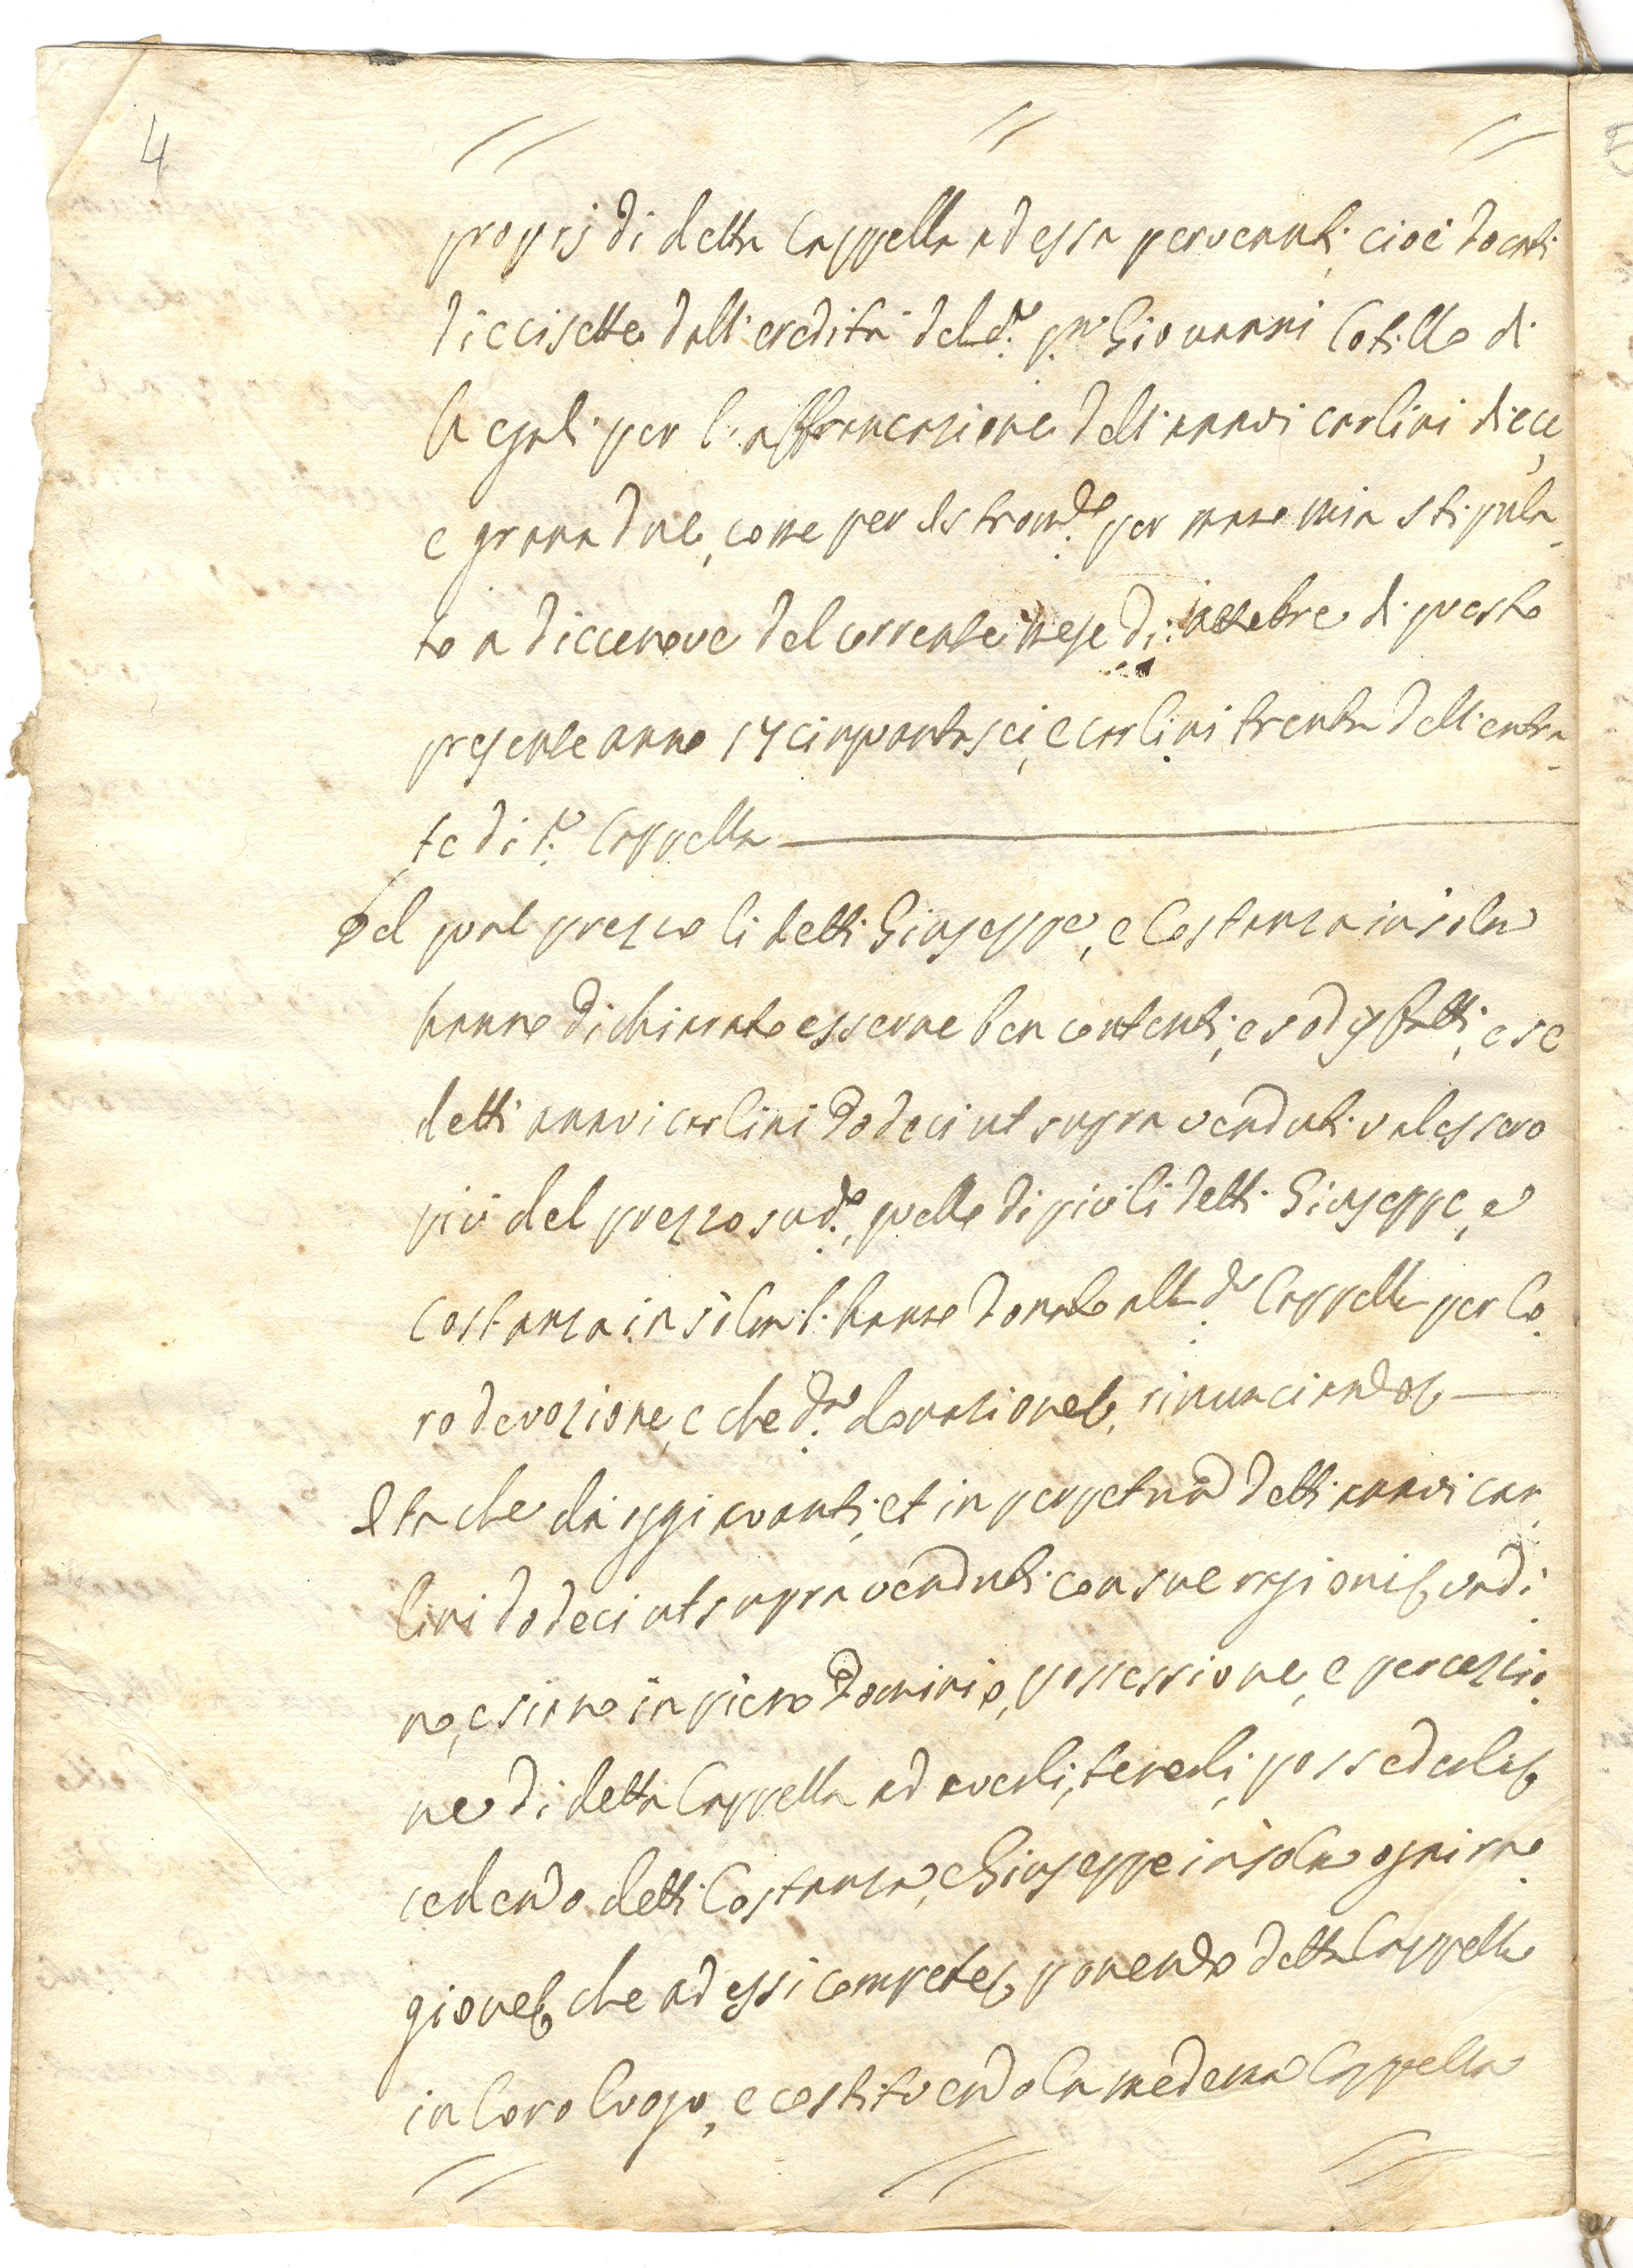 4
proprij di detta Cappella ad essa pervenuti, cioè docati
diecisette dall'eredità del d.° q.m Giovanni Cotillo di
per l'affrancazione dell'annui carlini diece,
e grana due, come per Istrom.to per mano mia stipula-
to a diecenove del corrente mese di: ottobre di questo
presente anno 17cinquantasei, e carlini trenta dell'entra-
te di d.a Cappella
Del qual prezzo li detti Giuseppe, e Costanza in solid
hanno dichiarato esserne ben contenti, e sodisfatti, e se
detti annui carlini dodeci ut supra venduti valessero
più del prezzo sud.°, quello di più li detti Giuseppe, e
Costanza in solid l'hanno donato alla d.a Cappella per lo-
ro devozione, e che d.a donazione, rinunciando
Ita che da oggi avanti, et in perpetuum detti annui car-
lini dodeci ut supra venduti con sue ragioni vadi-
no, e siano in pieno dominio, possessione, e percezzio-
ne di detta Cappella ad averli, tenerli, possederli
cedendo detti Costanza, e Giuseppe in solid ogni ra-
gione che ad essi compete ponendo detta Cappella
in loro luogo, e costituendo la medema Cappella